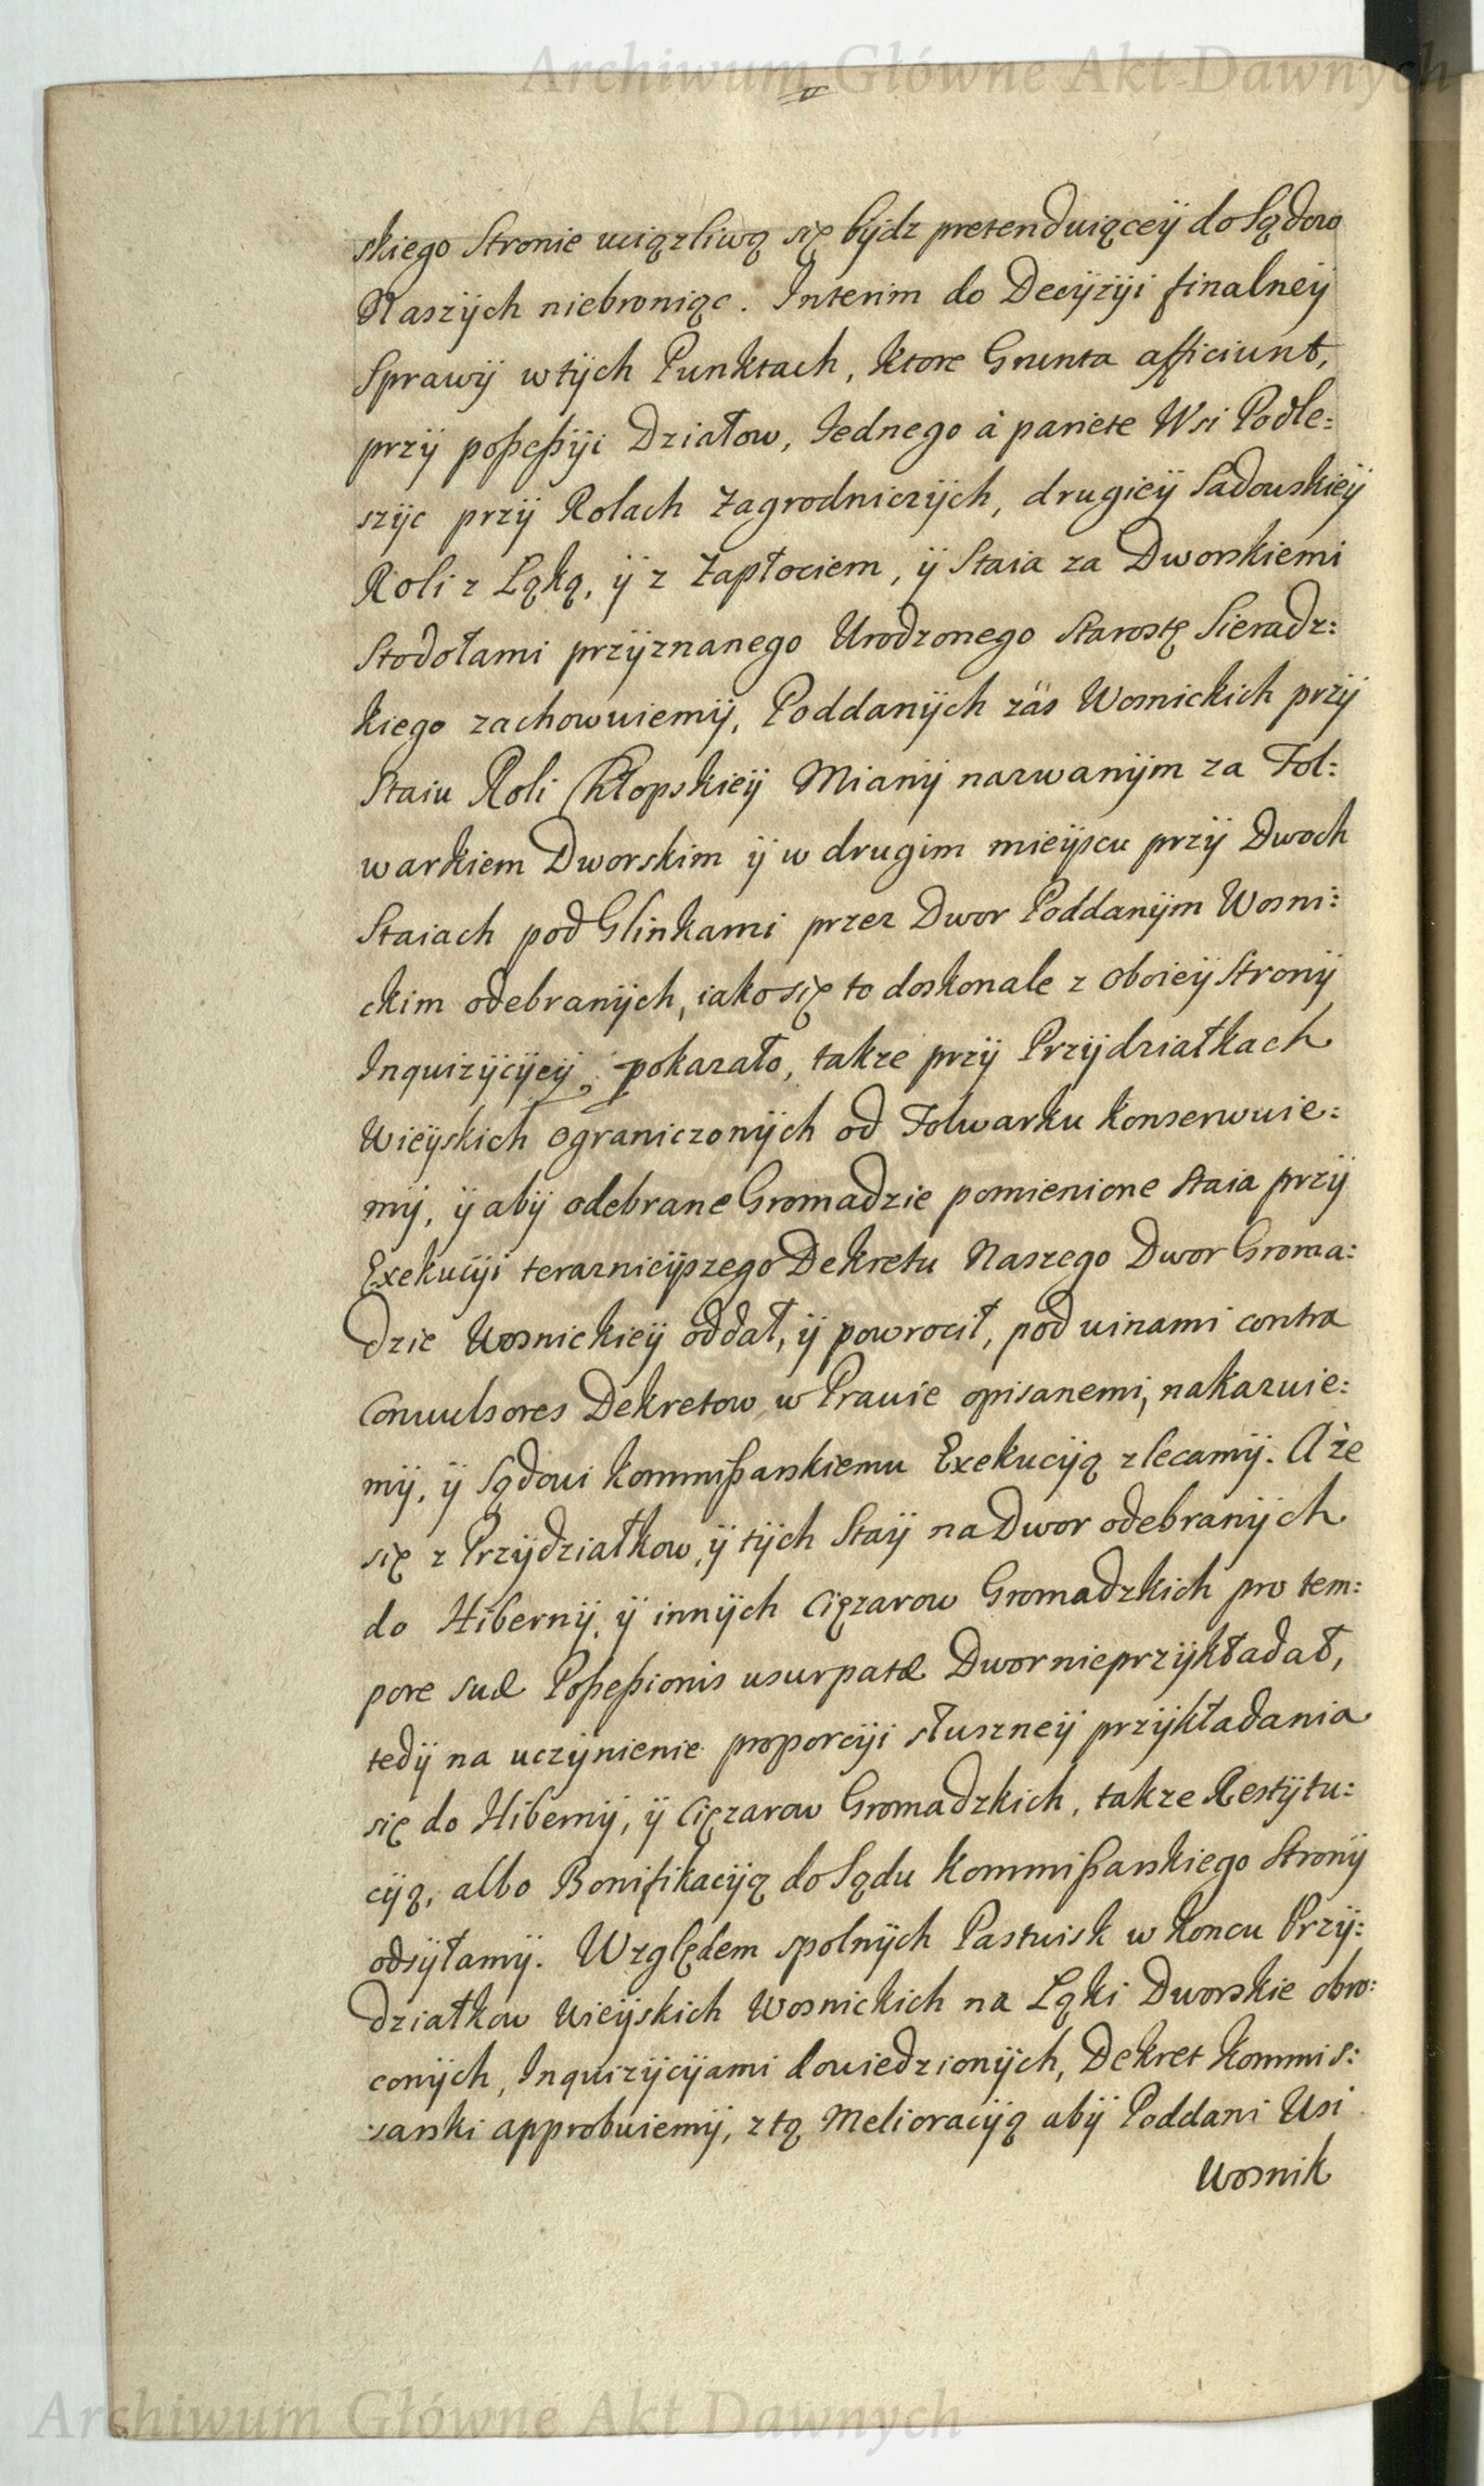 Archiwum Główne Akt Dawnych
skiego Stronie uciązliwą się bydz pretenduiącey do Sądow
Naszych niebroniąc. Interim do Decyzyi finalney
Sprawy wtych Punktach, ktore Grunta afficiunt,
przy poßeßyi Działow, Iednego à pariete Wsi Podle:
szyc przy Rolach Zagrodniczych, drugiey Sadowskiey
Roli z Ląką, y z Zapłociem, y Staia za Dworskiemi
Stodołami przyznanego Urodzonego Starostę Sieradz:
kiego zachowuiemy, Poddanych zás Wosnickich przy
Staiu Roli Chłopskiey Miany nazwanym za Fol:
warkiem Dworskim y w drugim mieyscu przy Dwoch
Staiach pod Glinkami przez Dwor Poddanym Wosni:
ckim odebranych, iako się to doskonale z oboiey Strony
Inquizycyey pokazało, takze przy Przydziałkach
Wieyskich ograniczonych od Folwarku konserwuie:
my, y aby odebrane Gromadzie pomienione Staia przy
Exekucyi teraznieyszego Dekretu Naszego Dwor Groma:
dzie Wosnickiey oddał, y powrocił, pod winami contra
Convulsores Dekretow w Prawie opisanemi, nakazuie:
my, y Sądowi kommißarskiemu Exekucyą zlecamy. A że
się z Przydziałkow, y tych Stay na Dwor odebranych
do Hiberny, y innych Cięzarow Gromadzkich pro tem:
pore suæ Poßeßionis usurpatæ Dwor nieprzykładał,
tedy na uczynienie proporcyi słuszney przykładania
się do Hiberny, y Ciężarow Gromadzkich, takze Restytu:
cyą, albo Bonifikacyą do Sądu kommißarskiego Strony
odsyłamy. Względem spolnych Pastwisk w koncu Przy:
działkow Wieyskich Wosnickich na Ląki Dworskie obro:
conych, Inquizycyami dowiedzionych, Dekret kommis:
sarski approbuiemy, z tą Melioracyą aby Poddani Wsi
Wosnik
Archiwum Główne Akt Dawnych